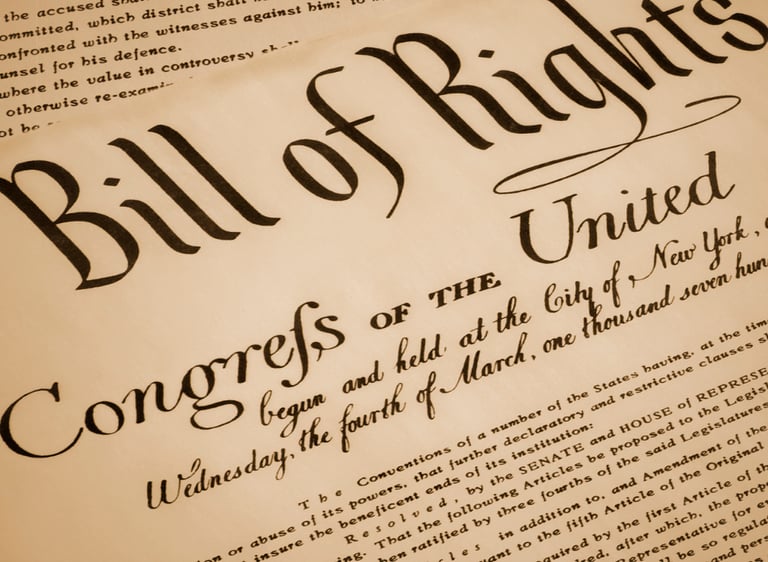 the accused
ommitted, which district shall
onfronted with the witnesses against him; to
unsel for his defence.
where the value in controversy
otherwise re-exami
Bill of Rights
Congreſs OF THE United
begun and held at the City of New York,
Wednesday, the fourth of March, one thousand seven hun
The Conventions of a number of the States having, at the tim
on or abuse of its powers, that further declaratory and restrictive clauses
insure the beneficent ends of its institution:
Resolved, by the SENATE and HOUSE of REPRESE
ing. That the following Articles be proposed to the Legisl
en ratified by three fourths of the said Legislatures
les in addition to, and Amendment of the
ant to the fifth Article of the Original
quired by the first Article of the
red, after which, the prop
Representative for ev
ll be so regula
and pers